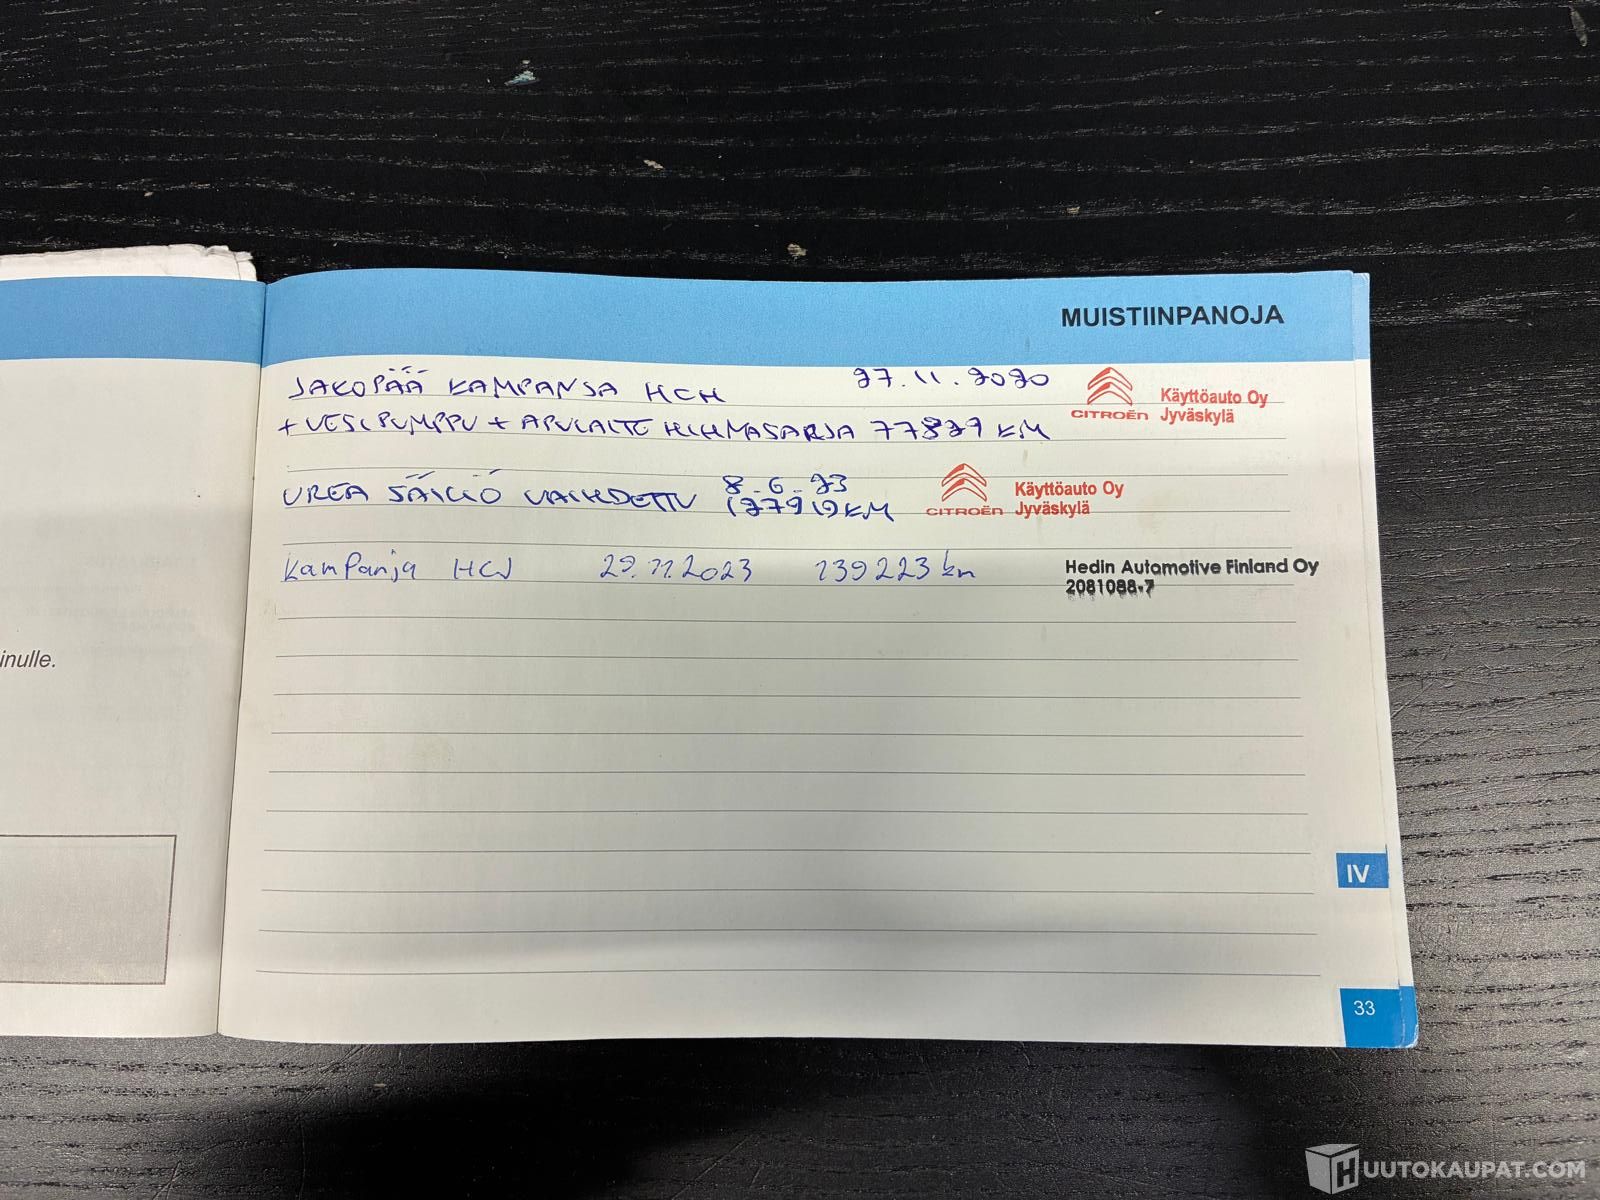 MUISTIINPANOJA
JAKOPÄÄ KAMPANJA HCH 27.11.2020
CITROËN Käyttöauto Oy
Jyväskylä
+ VESIPUMPPU + APULAITE HIHNASARJA 77829 KM
UREA SÄILIÖ VAIHDETTU 8.6.23
127919 KM
CITROËN Käyttöauto Oy
Jyväskylä
Kampanja HCJ 29.11.2023 139223 km
Hedin Automotive Finland Oy
2081088-7
inulle.
IV
33
HUUTOKAUPAT.COM